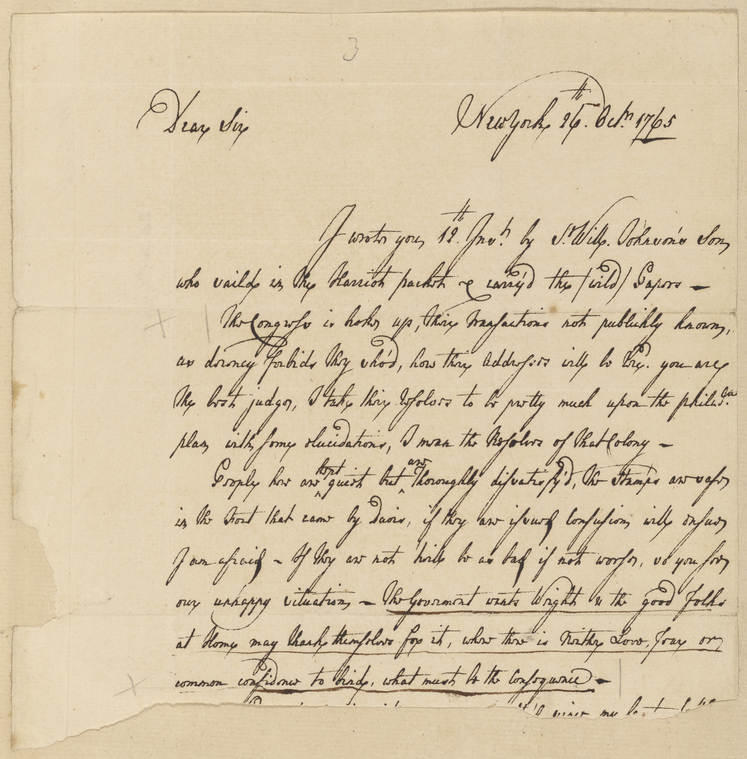 3
Dear Sir
New York 26th. Octr. 1765
I wrote you 12th Inst. by Sr. Willm. Johnson's Son
who saild in the Harriot packet & carry'd the (wild) Papers —
The Congress is broke up, their transactions not publickly known,
as decency forbids they shod, how their Addresses will be you are
the best judges, I take their resolves to be pretty much upon the philada.
plan with some elucidations, I mean the Resolves of that Colony —
People here are kept quiet but are thoroughly dissatisfy'd, the Stamps are safe
in the Fort that came by Davis, if they are issued confusion will ensue
I am afraid — If they are not twill be as bad if not worse, so you see
our unhappy situation — The Government wants Weight & the good folks
at Home may thank themselves for it, where there is Neither Love, fear or
common confidence to bind, what must be the consequence —
my last